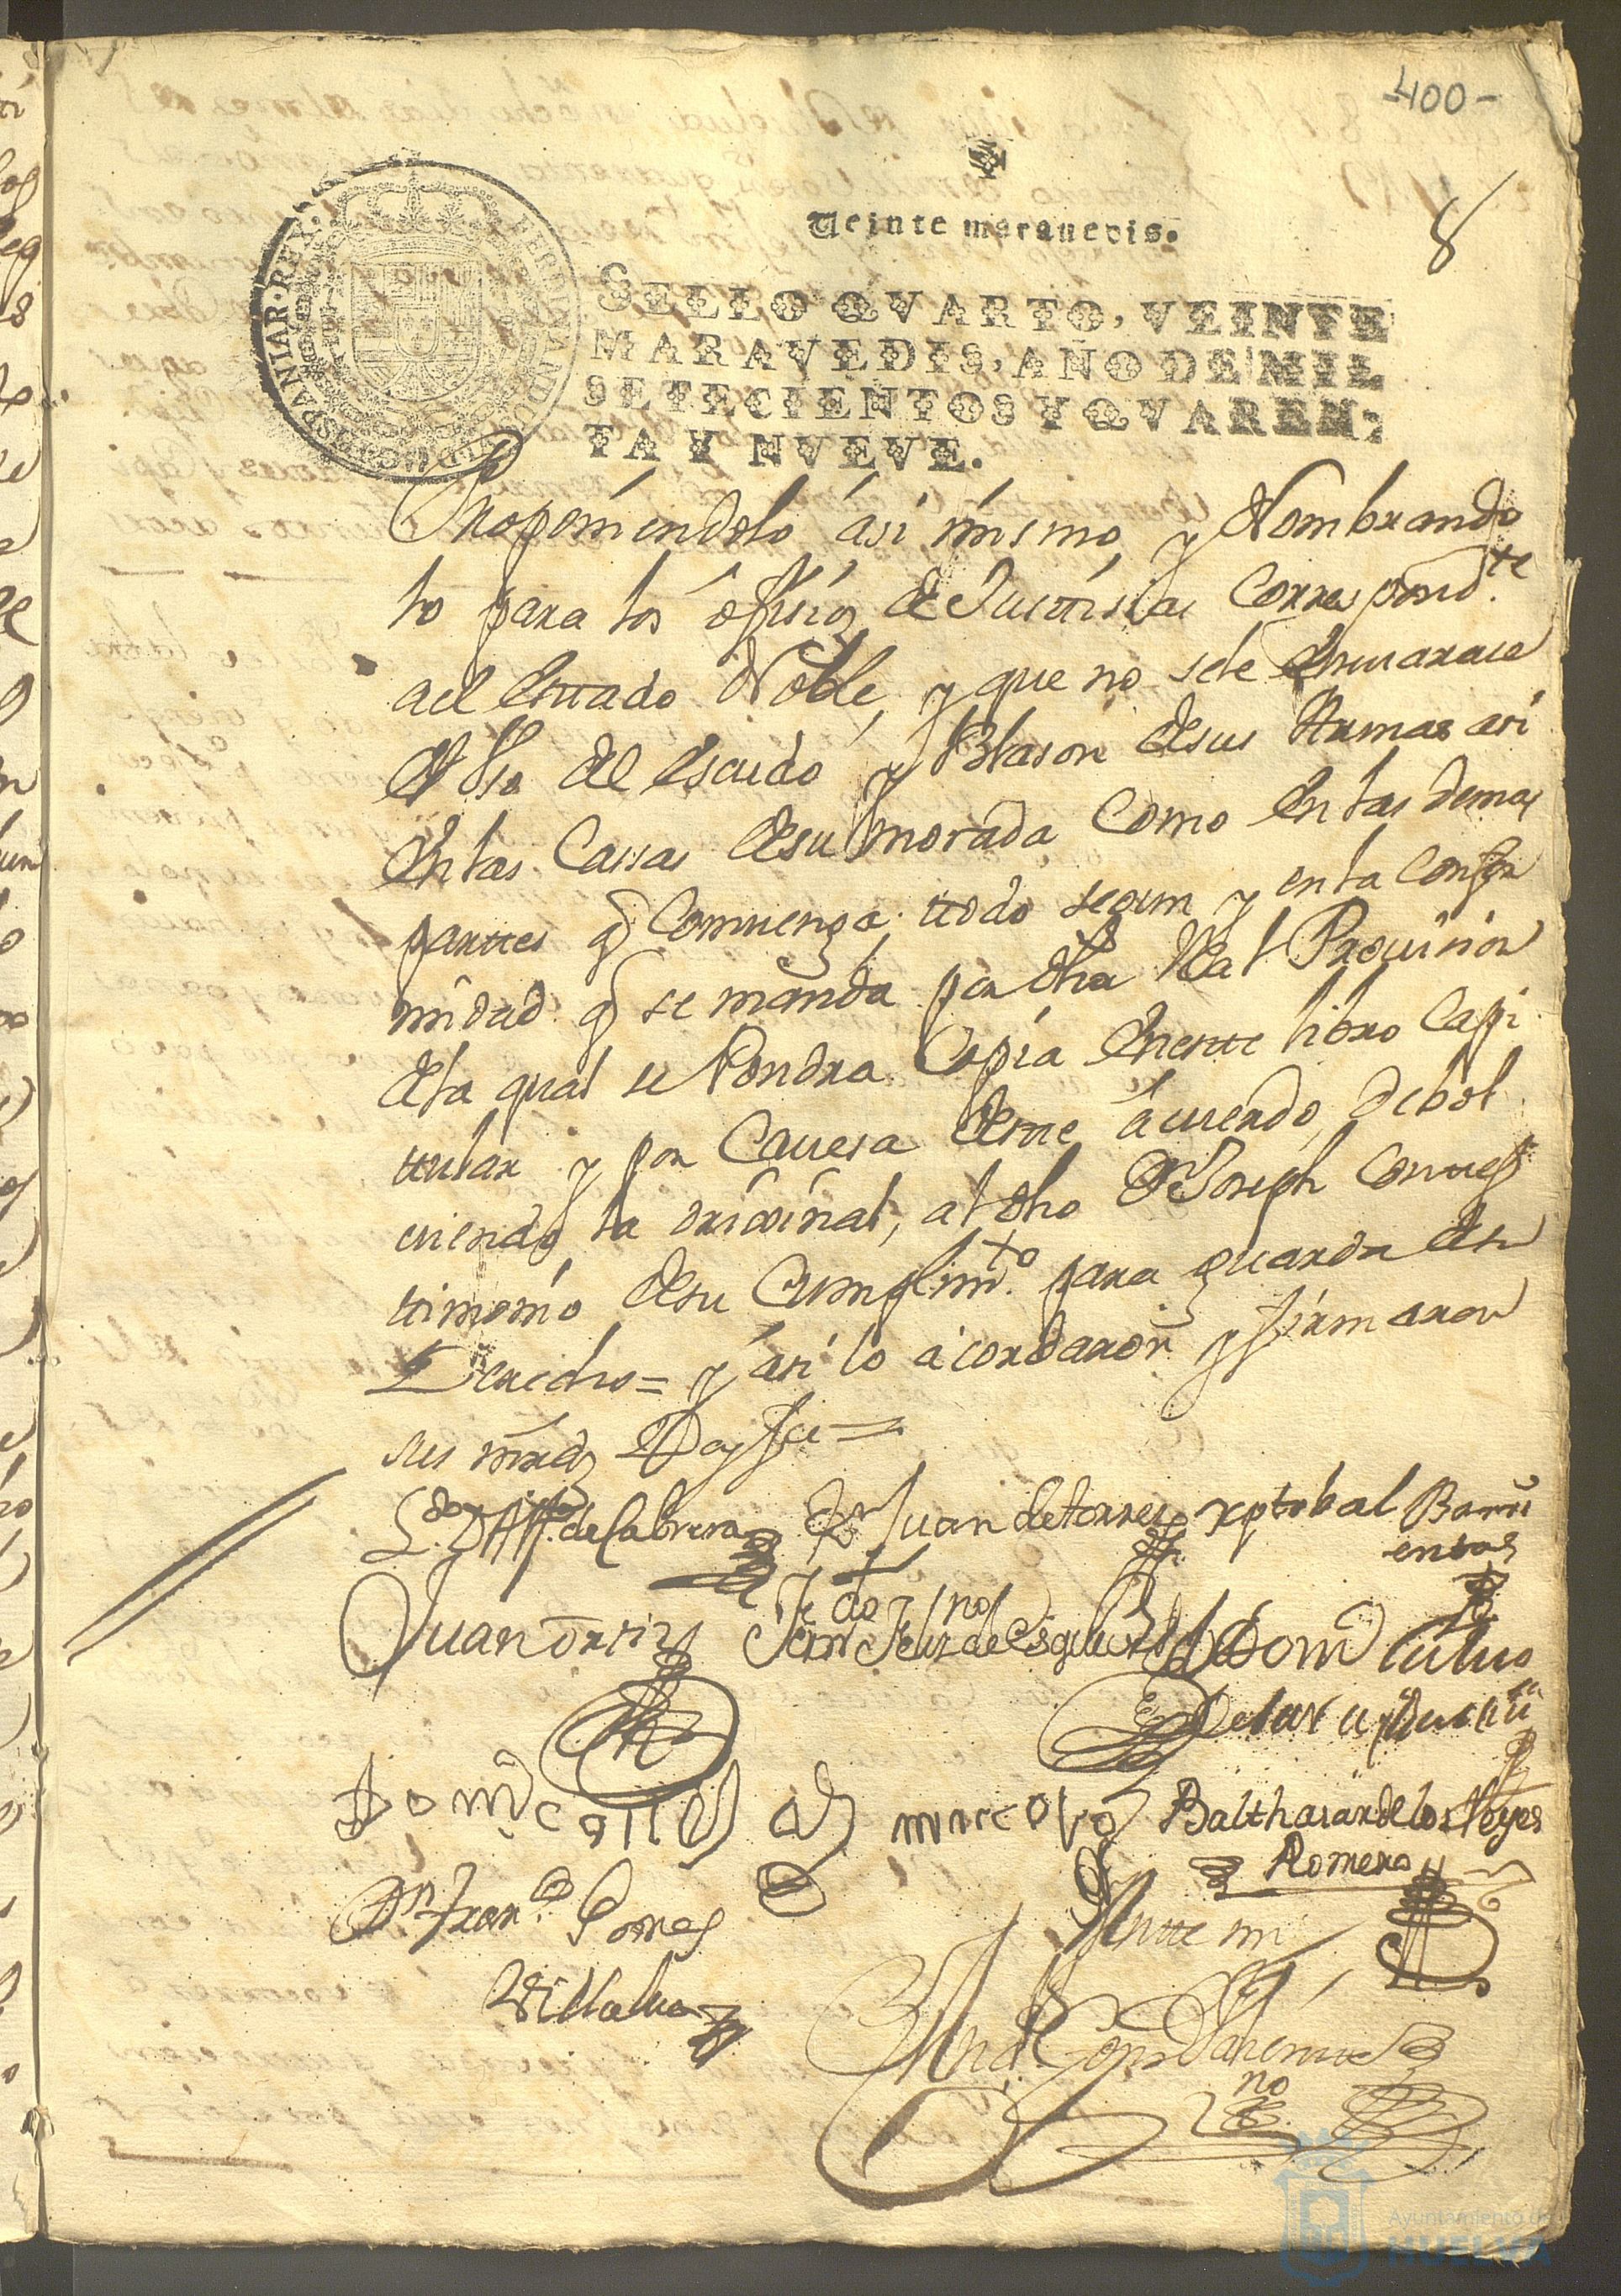 -400-
8
Veinte maravedis.
SELLO QVARTO, VEINTE
MARAVEDIS, AÑO DE MIL
SETECIENTOS Y QVAREN-
TA Y NVEVE.
HISPANIAR·REX·
Proponiendolo asi mismo, y Nombrando
lo para los ofisios de Justisias Correspond.te
ael Estado Noble, y que no sele Envarace
el Vso del escudo y Blason desus Armas asi
En las Cassas desu morada Como En las demas
parttes q Convenga; ttodo segun y en la Confor
midad q se manda por dha Real Provision
dela qual se Pondra Copia Eneste libro Capi
ttular y por Cavesa deste acuerdo, debol
viendo la original, al dho Dn Joseph Con ttes
timonio desu Cumplim.to para guarda de su
Derecho = y asi lo acordaron y firmaron
sus mrds Doy fee =
L.do D Alf.o de Cabrera
Dn Juan de torres
xptobal Barri
entos
Juan ortiz
Domo Calvo
Balthasar de los Reyes
Romero
Dn Fran.co Gomes
Villalva
Antte mi
Ayuntamiento de
HUELVA